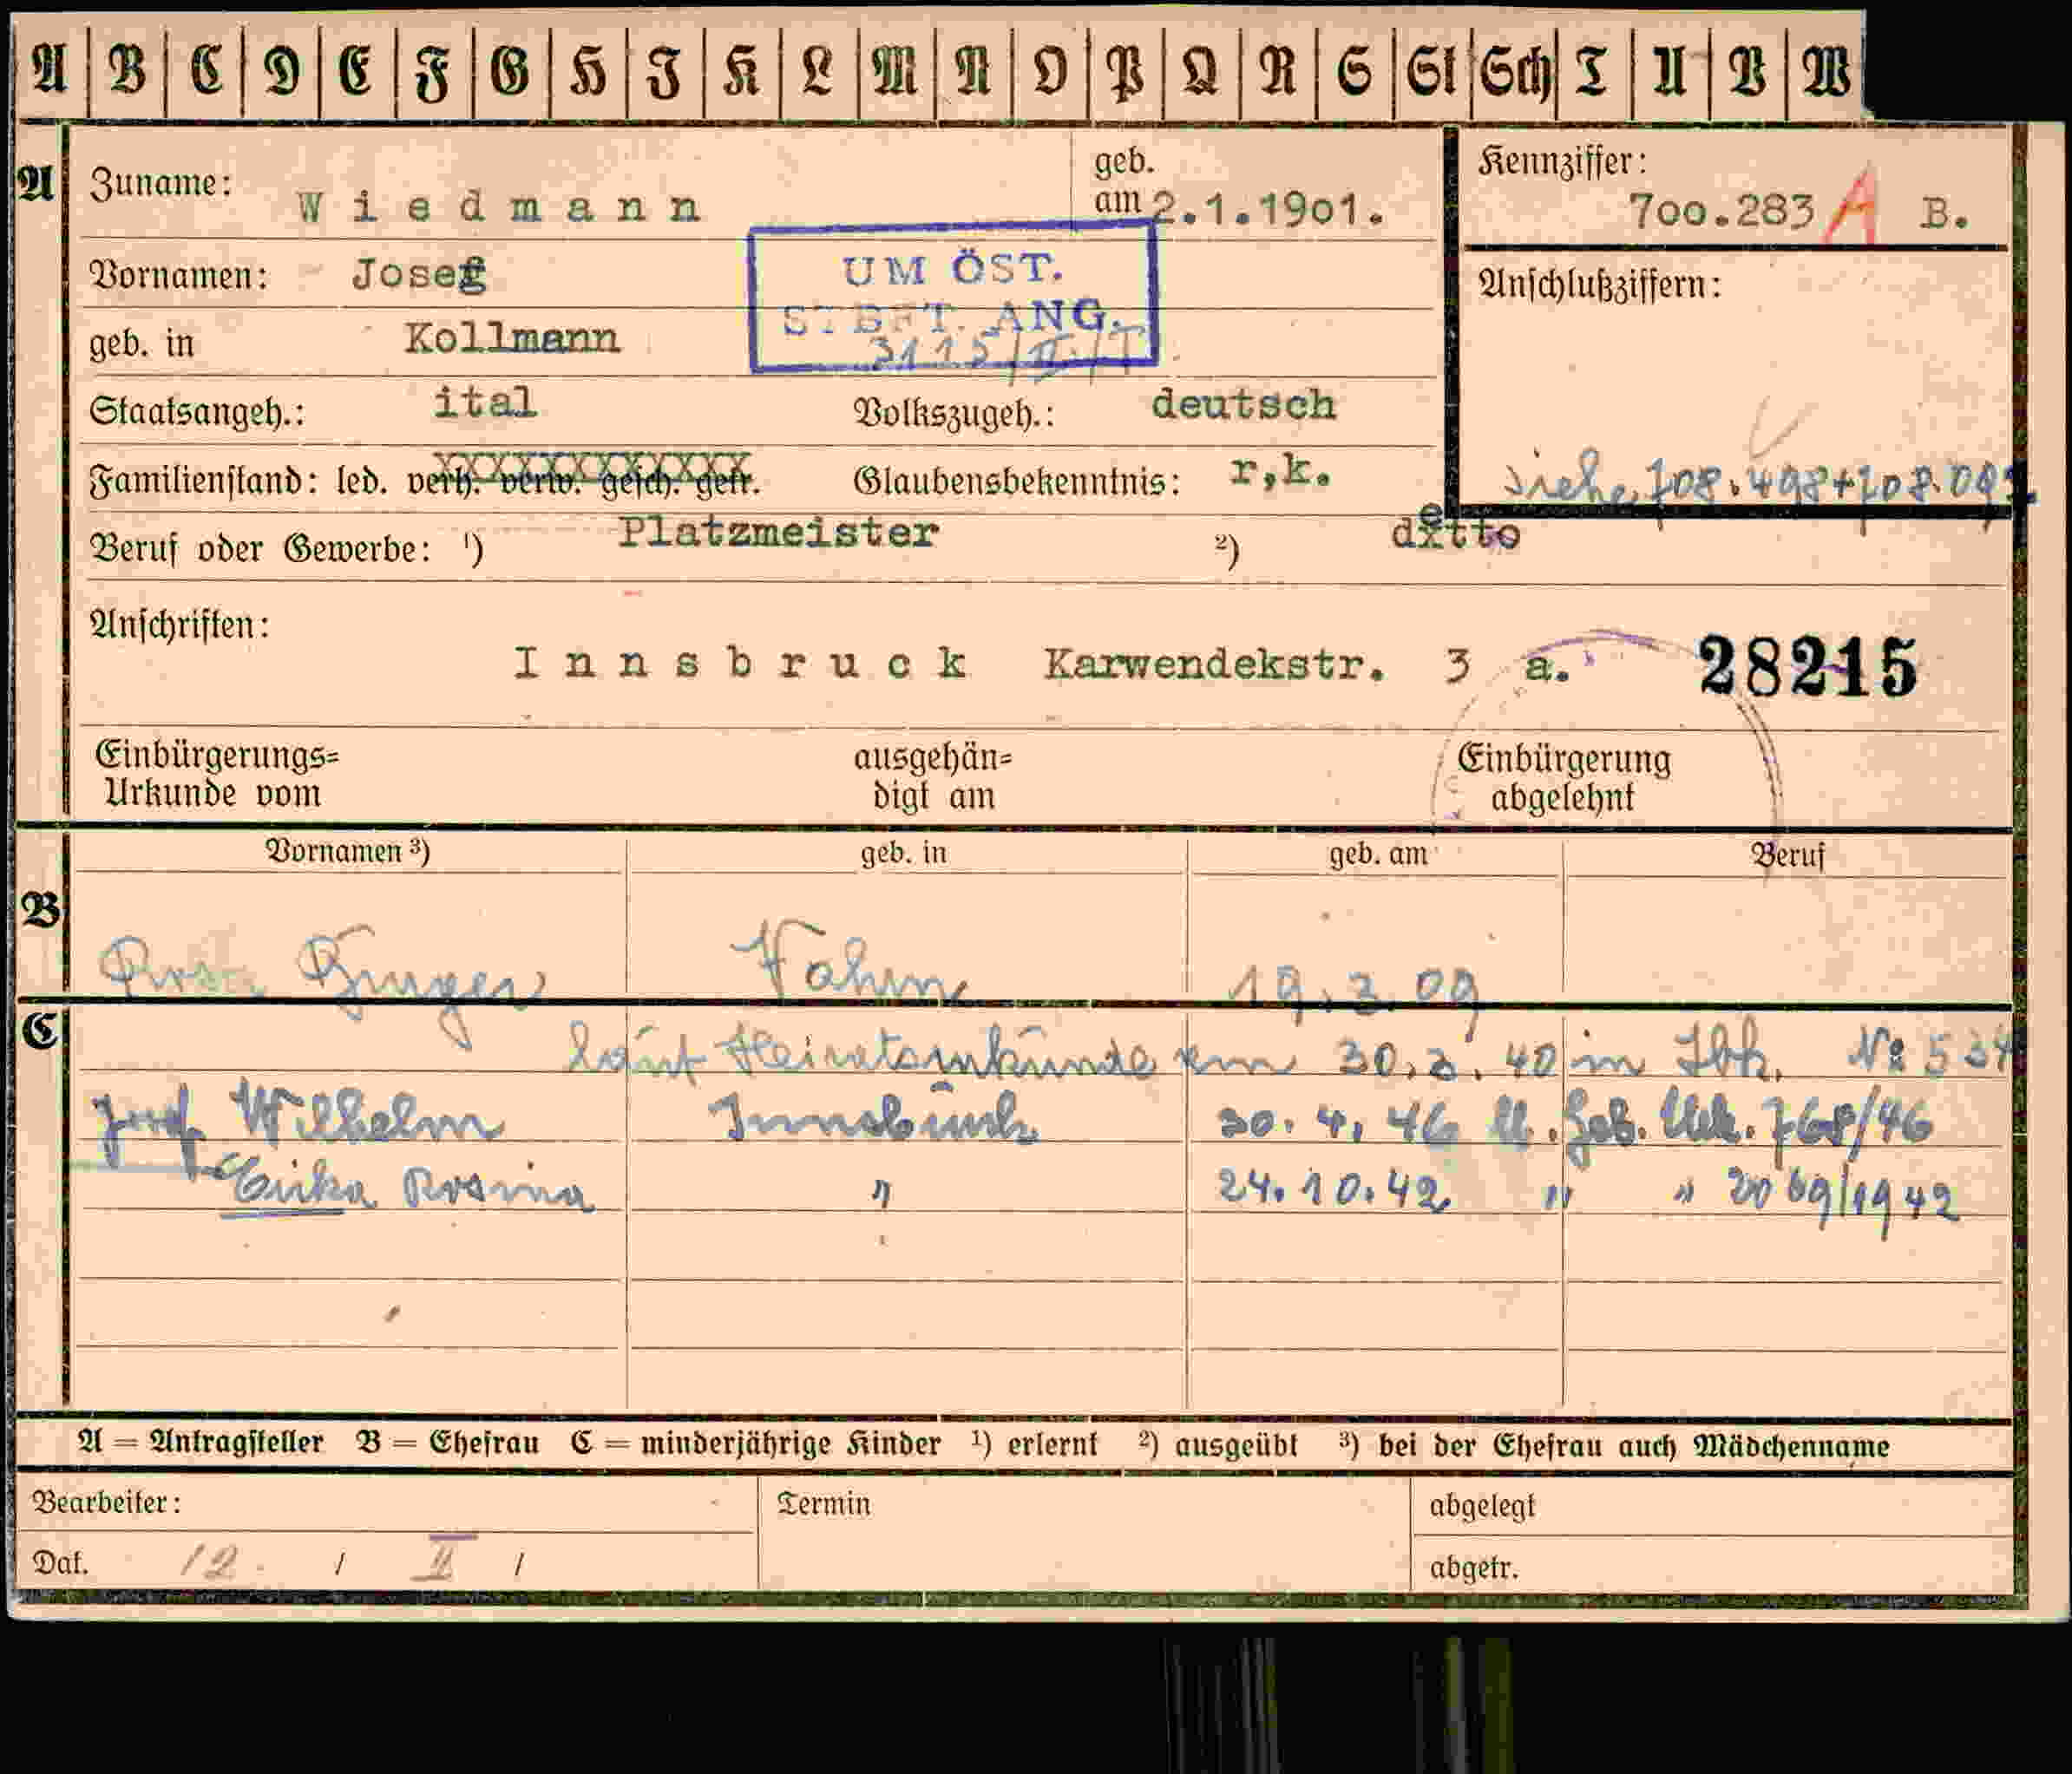 A B C D E F G H J K L M N O P Q R S St Sch T U V W
A Zuname: Wiedmann geb. am 2.1.1901. Kennziffer: 700.283 A B.
Vornamen: Josef UM ÖST. Anschlußziffern:
STBFT. ANG.
geb. in Kollmann 3115/II/I
Staatsangeh.: ital Volkszugeh.: deutsch
Familienstand: led. verh. verw. gesch. getr. Glaubensbekenntnis: r,k. siehe 708.498+708.09
Beruf oder Gewerbe: ¹) Platzmeister ²) detto
Anschriften:
Innsbruck Karwendekstr. 3 a. 28215
Einbürgerungs= ausgehän= Einbürgerung
Urkunde vom digt am abgelehnt
Vornamen ³) geb. in geb. am Beruf
B
Rosa Vahrn 19.3.09
C
laut Heiratsurkunde vom 30.3.40 in Ibk. No 534
Josef Wilhelm Innsbruck 30.4.46 lt. Geb. Urk. 768/46
Erika Rosina " 24.10.42 " " 2069/1942
A = Antragsteller B = Ehefrau C = minderjährige Kinder ¹) erlernt ²) ausgeübt ³) bei der Ehefrau auch Mädchenname
Bearbeiter: Termin abgelegt
Dat. 12. / II / abgetr.